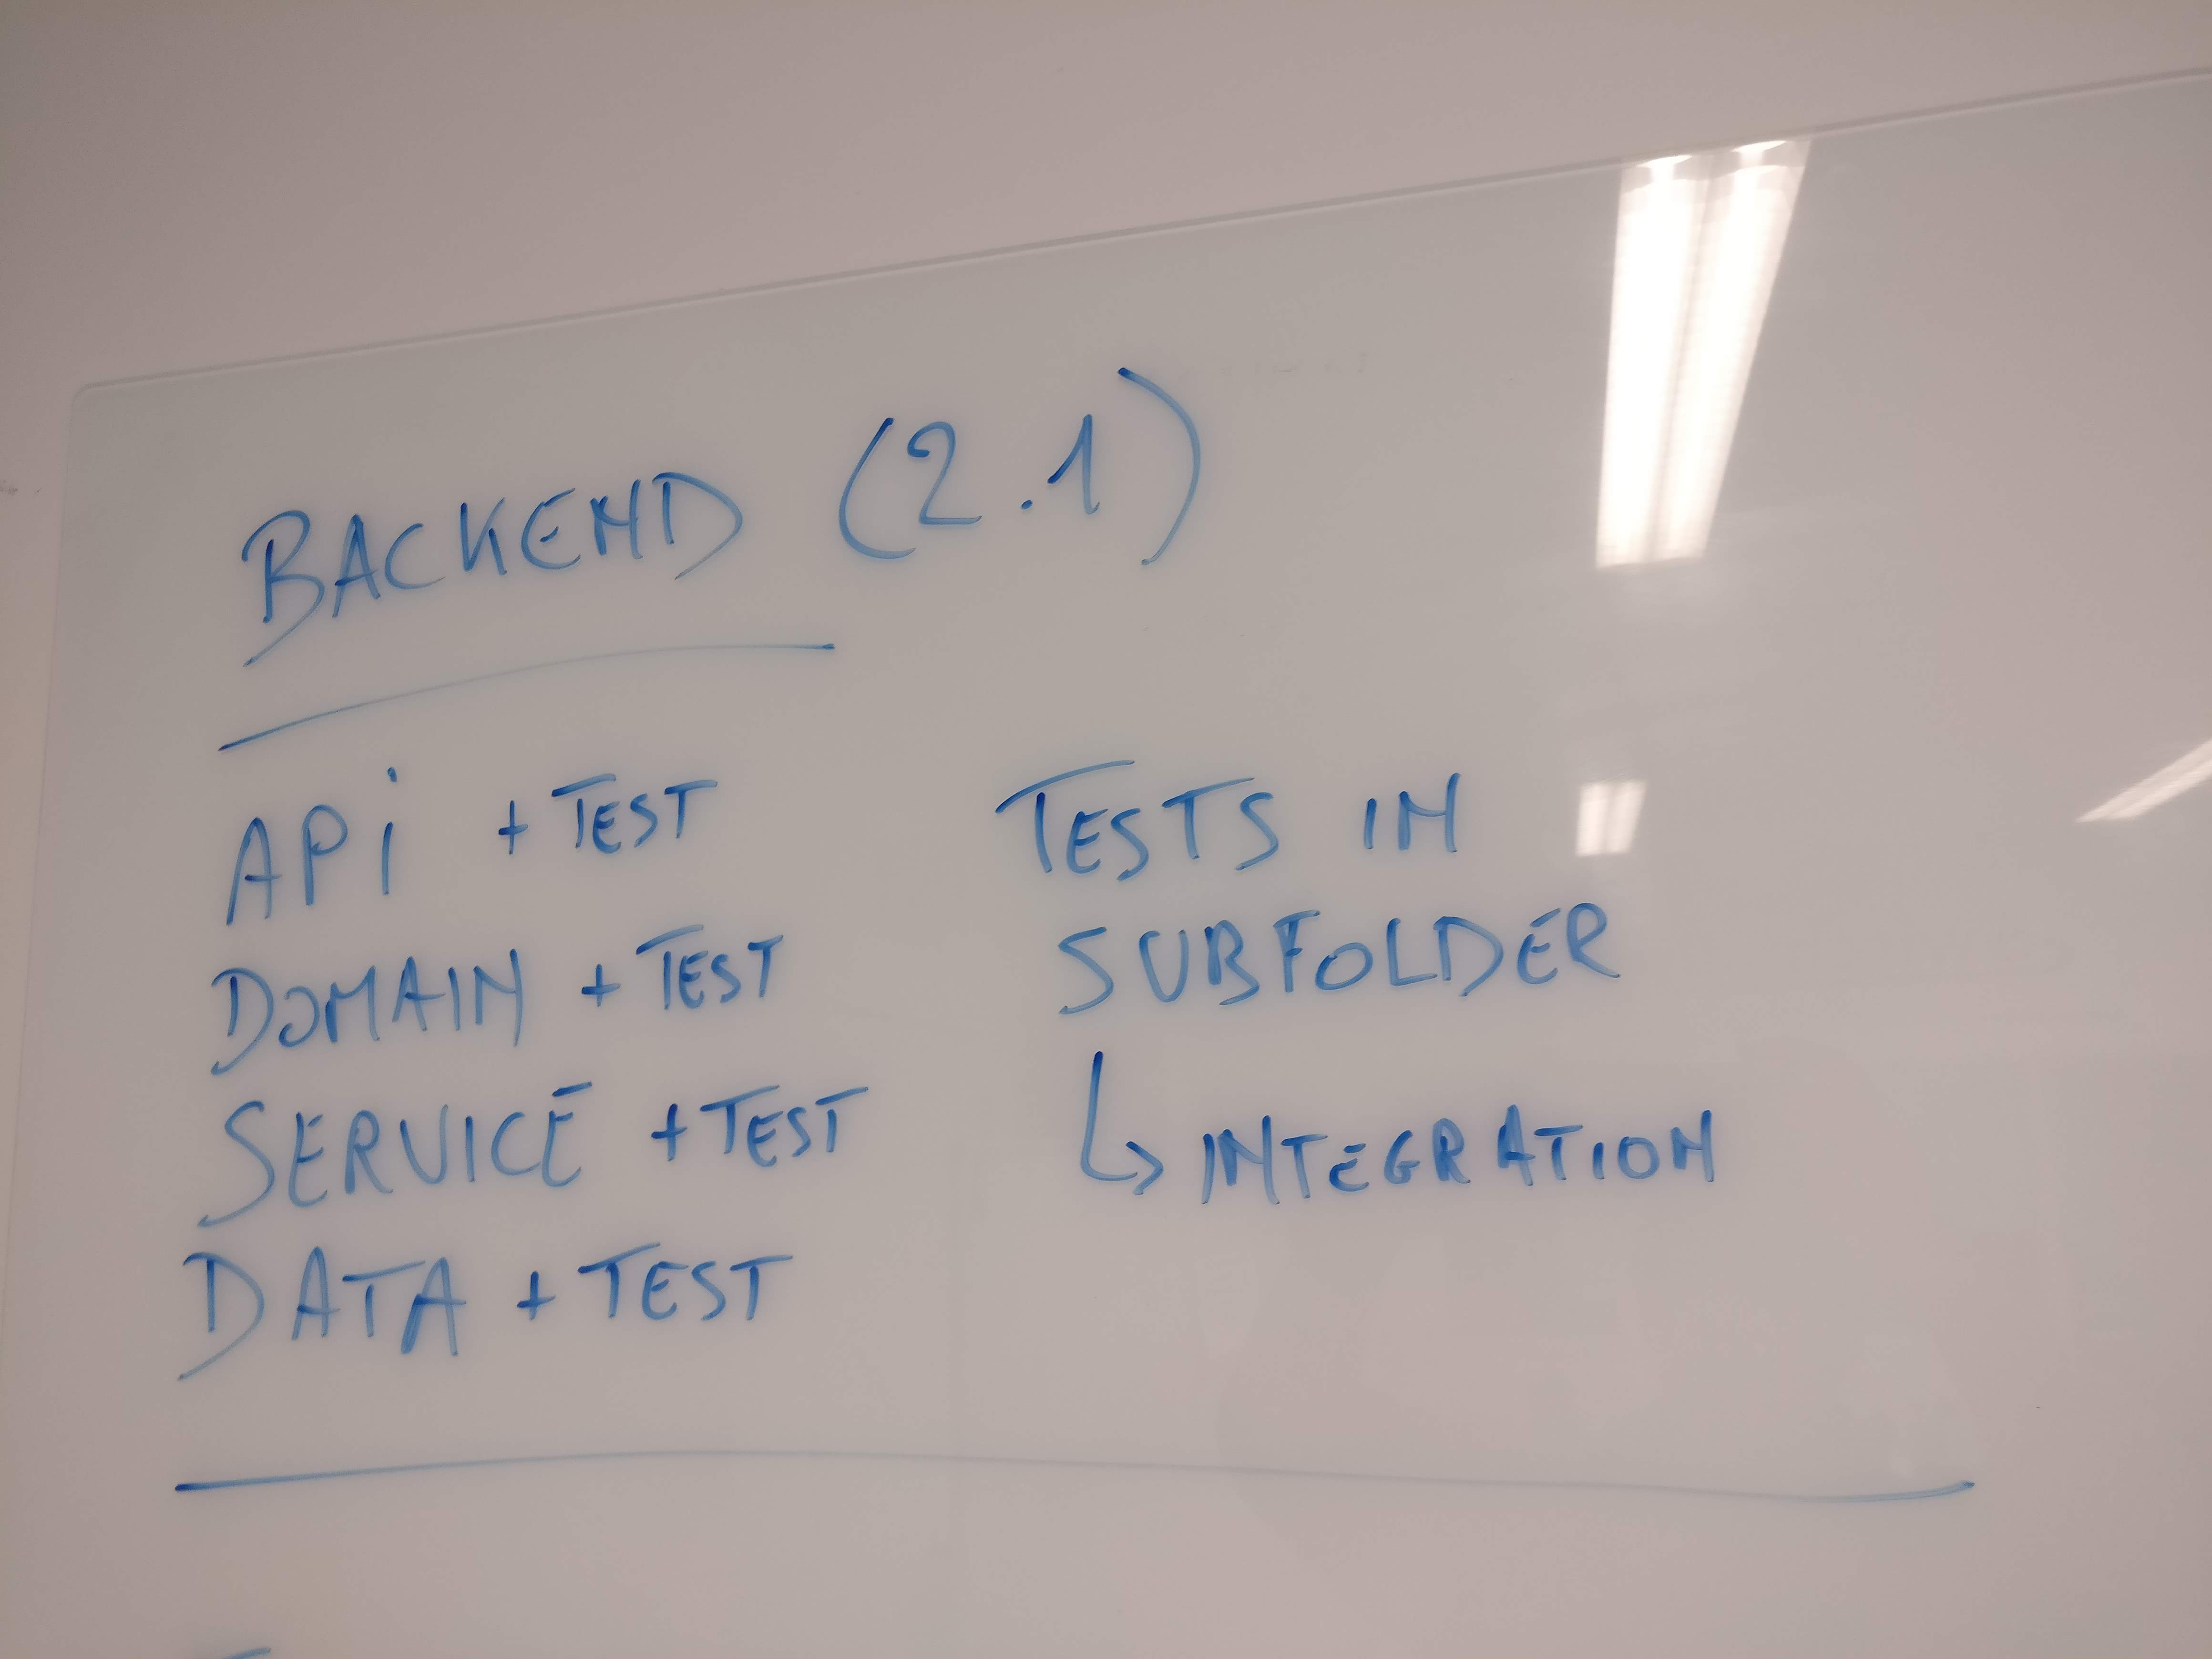 BACKEND (2.1)
APi + TEST
DOMAIN + TEST
SERVICE + TEST
DATA + TEST
TESTS IN
SUBFOLDER
↳ INTEGRATION